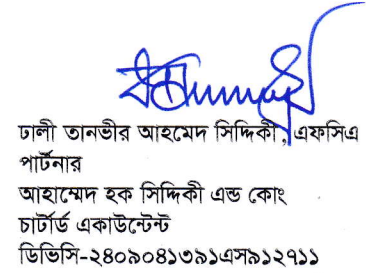 ঢালী তানভীর আহমেদ সিদ্দিকী, এফসিএ
পার্টনার
আহাম্মেদ হক সিদ্দিকী এন্ড কোং
চার্টার্ড একাউন্টেন্ট
ডিভিসি-২৪০৯০৪১৩৯১এস৯১২৭১১